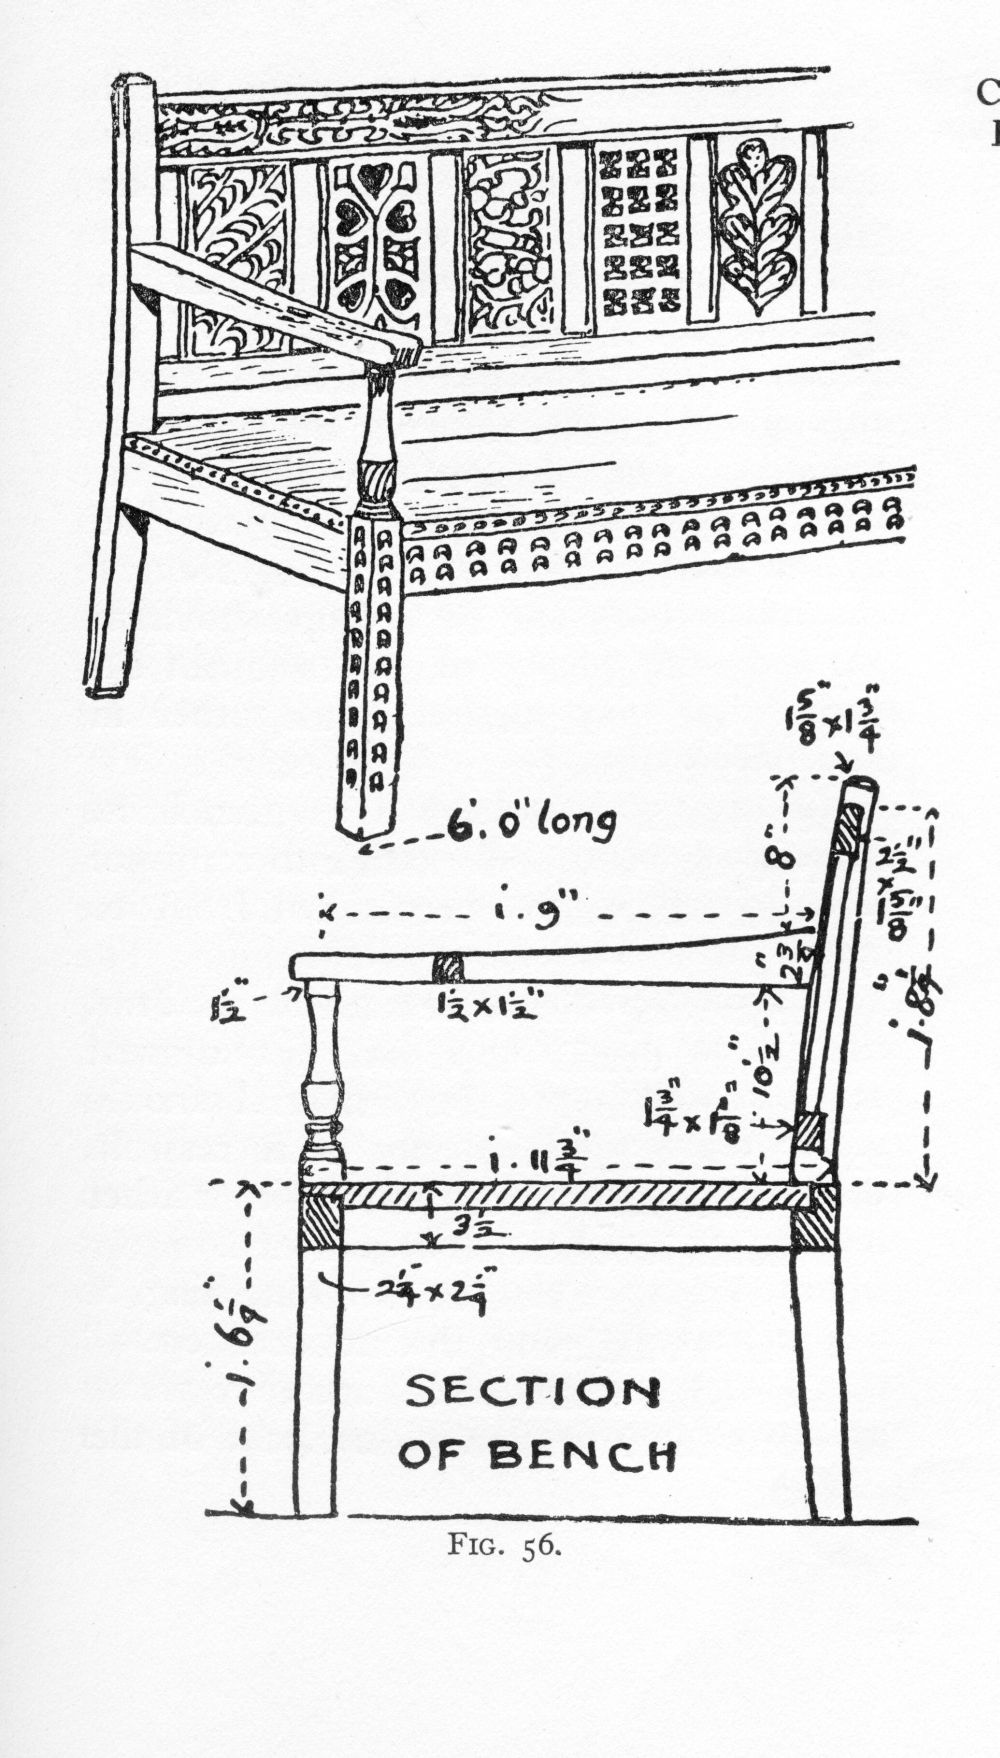 C
1 5/8" x 1 3/4"
6'. 0" long
8"
2 1/2" x 1 5/8"
1'. 9"
2 3/8"
1 1/2"
1 1/2 x 1 1/2"
1'. 8 1/4"
10 1/2"
1 3/4" x 1 1/8"
1'. 11 3/4"
3 1/2
2 1/4" x 2 1/4"
1'. 6 1/4"
SECTION
OF BENCH
FIG. 56.